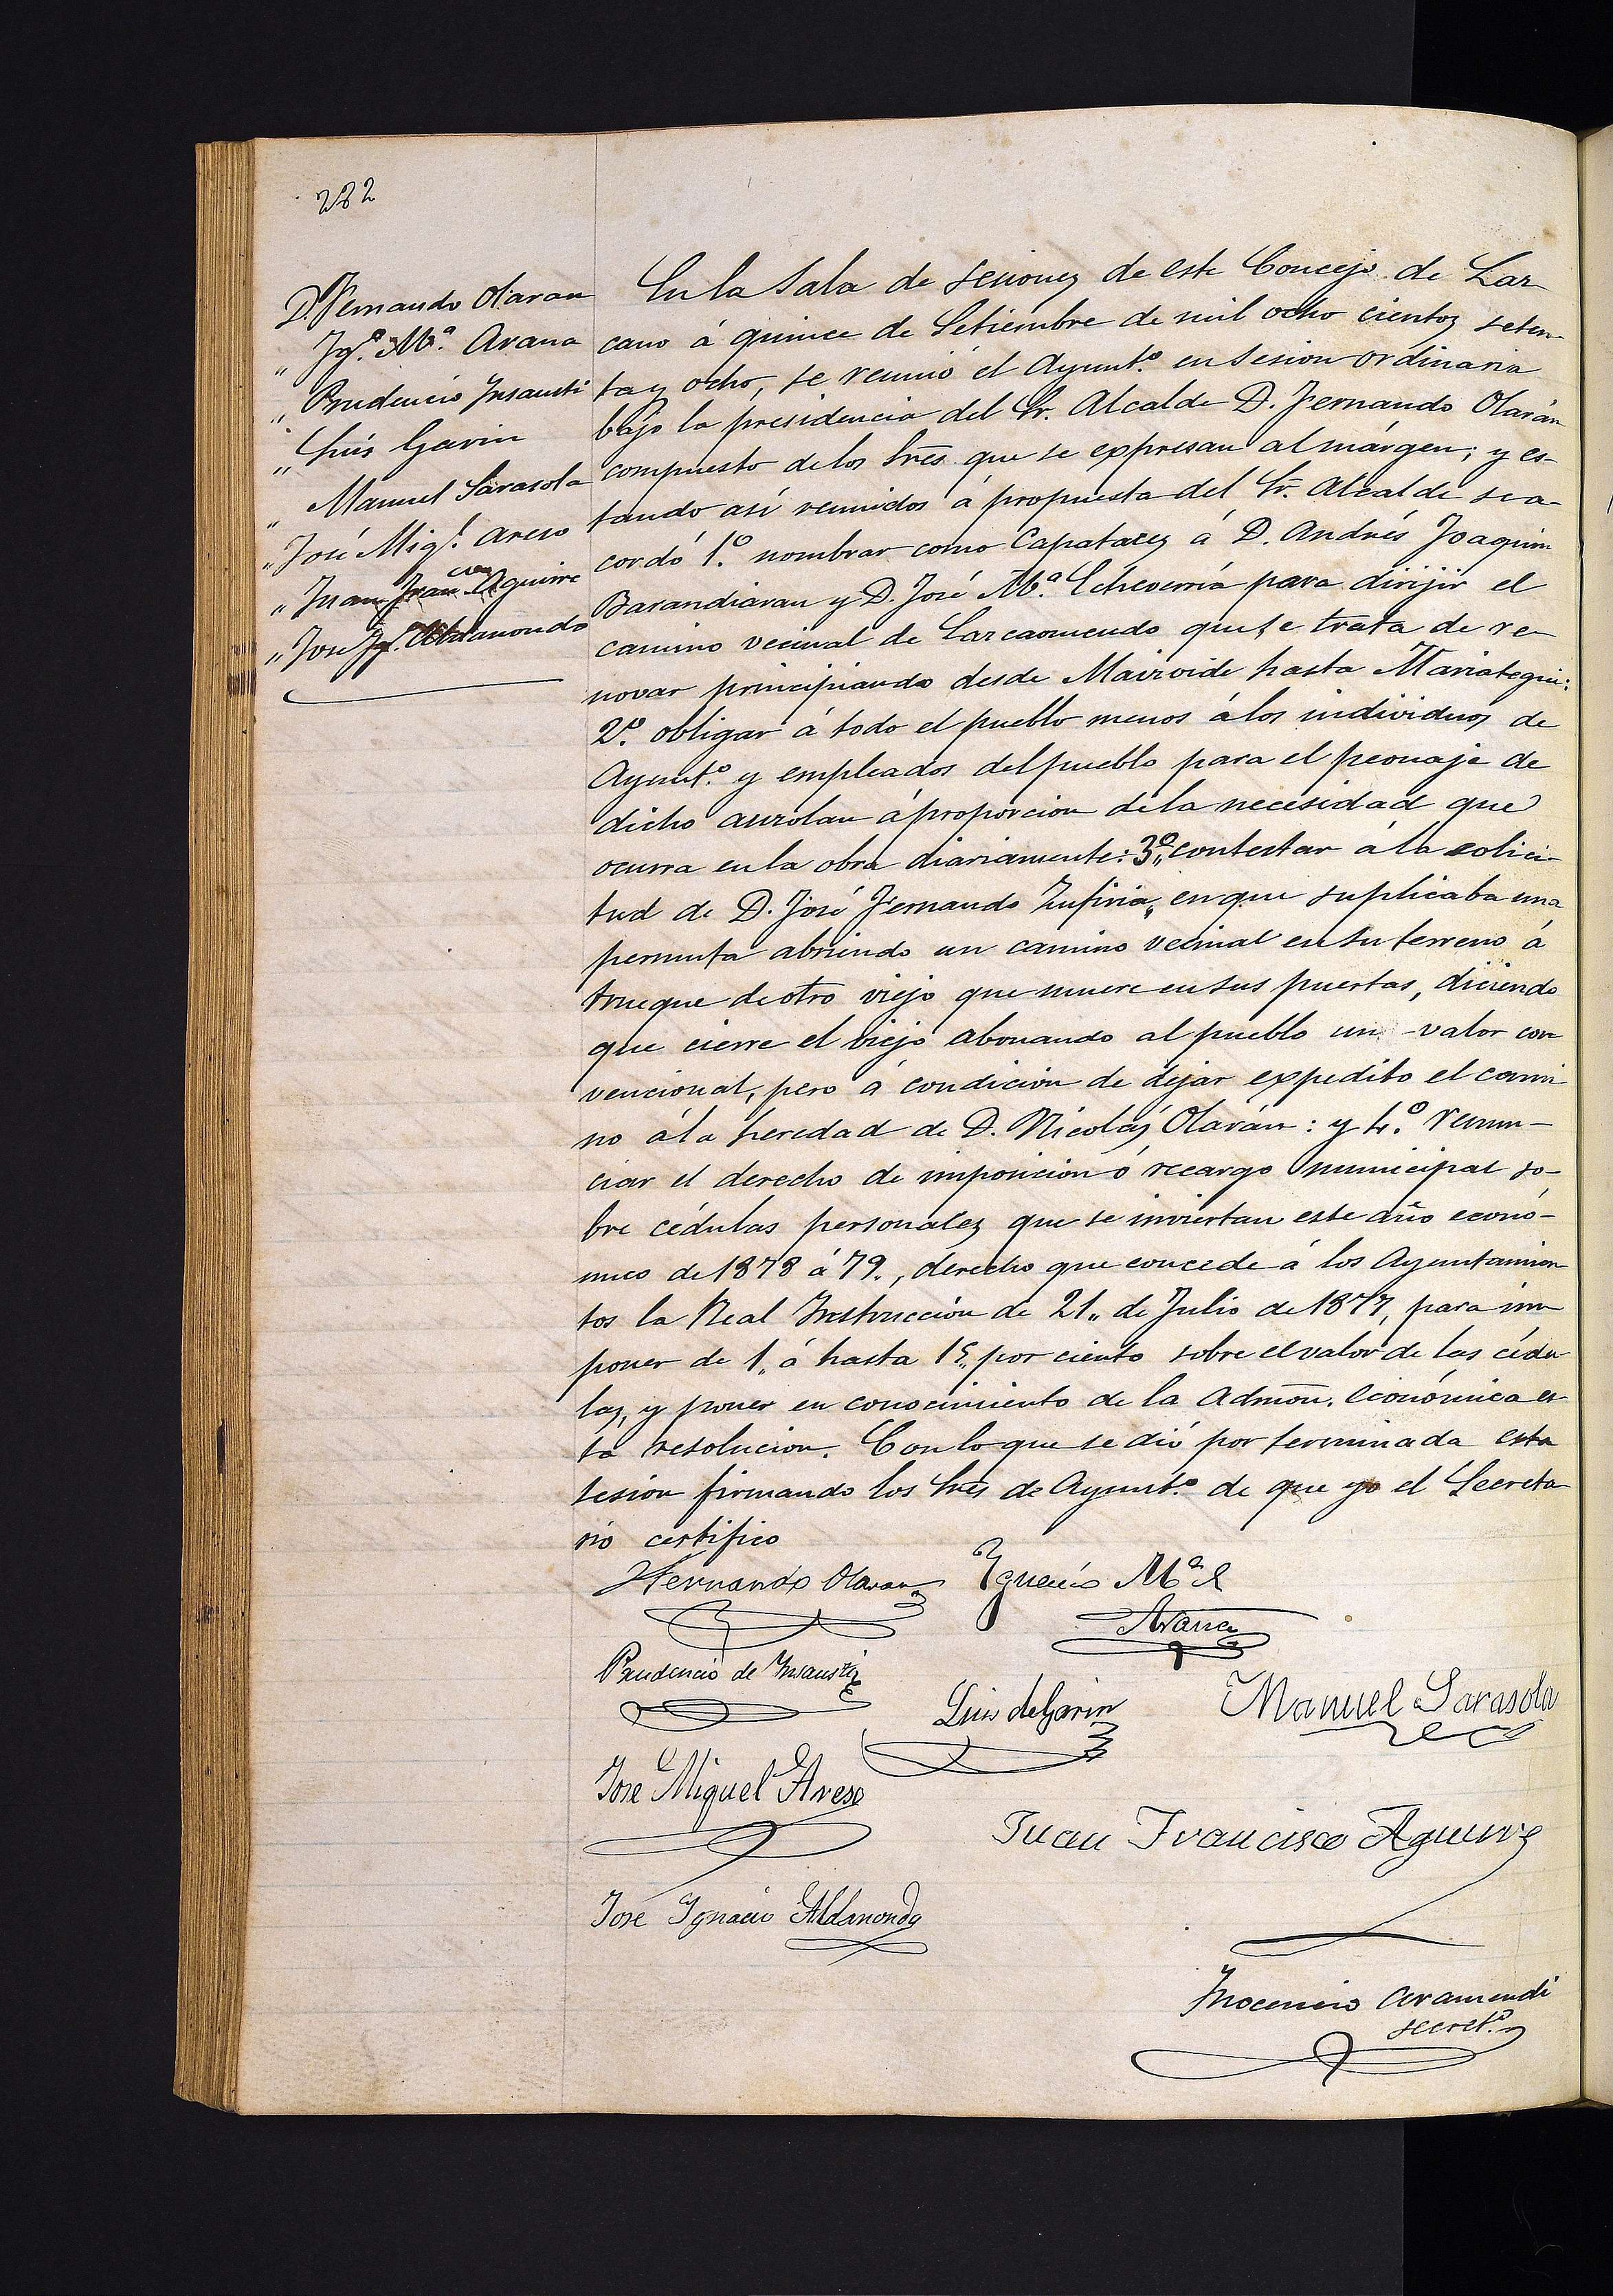 282
D. Fernando Olaran
" Ign.º M.ª Arana
" Prudencio Insausti
" Luis Garin
" Manuel Sarasola
" José Mig.l Areso
" Juan Fran.co Aguirre
" José Ig.º Aldanondo
En la Sala de sesiones de este Concejo de Laz-
cano á quince de Setiembre de mil ocho cientos seten-
ta y ocho, se reunió el Ayunt.º en sesion ordinaria
bajo la presidencia del Sr. Alcalde D. Fernando Olarán
compuesto de los Sres que se expresan al márgen; y es-
tando así reunidos á propuesta del Sr. Alcalde se a-
cordó 1.º nombrar como Capataces á D. Andrés Joaquin
Barandiaran y D. José M.ª Echeverría para dirijir el
camino vecinal de Lazcaomendo que se trata de re-
novar principiando desde Maizoide hasta Mariategui:
2.º obligar á todo el pueblo menos á los individuos de
Ayunt.º y empleados del pueblo para el peonaje de
dicho auzolan á proporcion de la necesidad que
ocurra en la obra diariamente: 3.º contestar á la solici-
tud de D. José Fernando Zufiria, en que suplicaba una
permuta abriendo un camino vecinal en su terreno á
trueque de otro viejo que muere en sus puertas, diciendo
que cierre el viejo abonando al pueblo un valor con
vencional, pero á condición de dejar expedito el cami
no á la heredad de D. Nicolás Olarán: y 4.º renun-
ciar el derecho de imposicion ó recargo municipal so-
bre cédulas personales que se inviertan este año econó-
mico de 1878 á 79., derecho que concede á los Ayuntamien
tos la Real Instrucción de 21 " de Julio de 1877, para im
poner de 1 " á hasta 15 " por ciento sobre el valor de las cédu
las, y poner en conocimiento de la Admon. económica es
ta resolucion. Con lo que se dió por terminada esta
sesion firmando los Sres de Ayunt.º de que yo el Secreta
rio certifico
Fernando Olaran
Ignacio M.ª
Arana
Prudencio de Insausti
Luis de Garin
Manuel Sarasola
Jose Miguel Areso
Juan Francisco Aguirre
Jose Ignacio Aldanondo
Inocencio Aramendi
secret.º